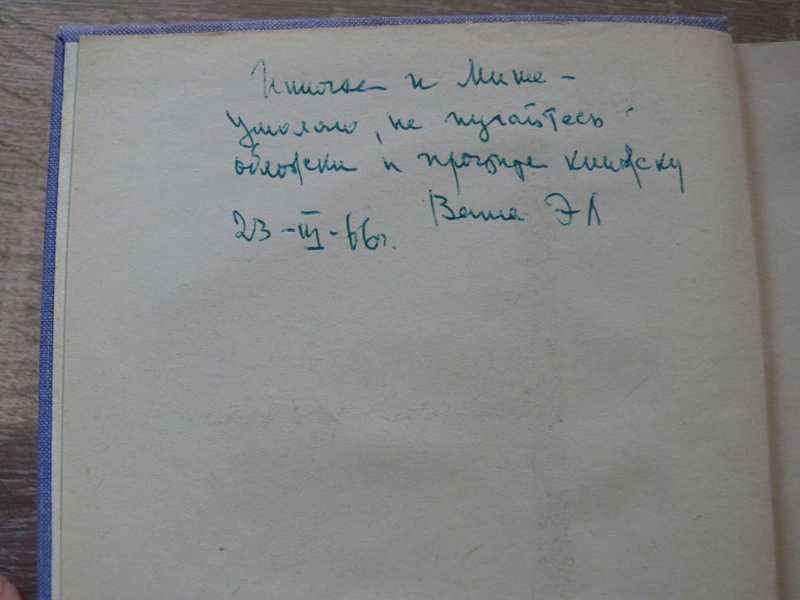 Инночке и Мише –
умоляю, не пугайтесь
обложки и прочтите книжку
Ваша ЭЛ
23-III-66г.